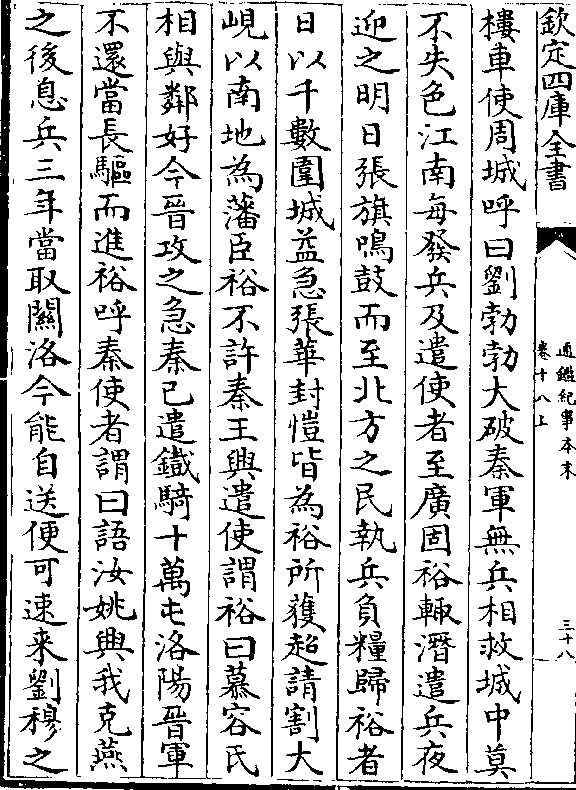 欽定四庫全書
通鑑紀事本末
卷十八上
三十八
樓車使周城呼曰劉勃勃大破秦軍無兵相救城中莫
不失色江南每發兵及遣使者至廣固裕輙潛遣兵夜
迎之明日張旗鳴鼓而至北方之民執兵負糧歸裕者
日以千數圍城益急張華封愷皆為裕所獲超請割大
峴以南地為藩臣裕不許秦王興遣使謂裕曰慕容氏
相與鄰好今晉攻之急秦已遣鐵騎十萬屯洛陽晉軍
不還當長驅而進裕呼秦使者謂曰語汝姚興我克燕
之後息兵三年當取關洛今能自送便可速来劉穆之